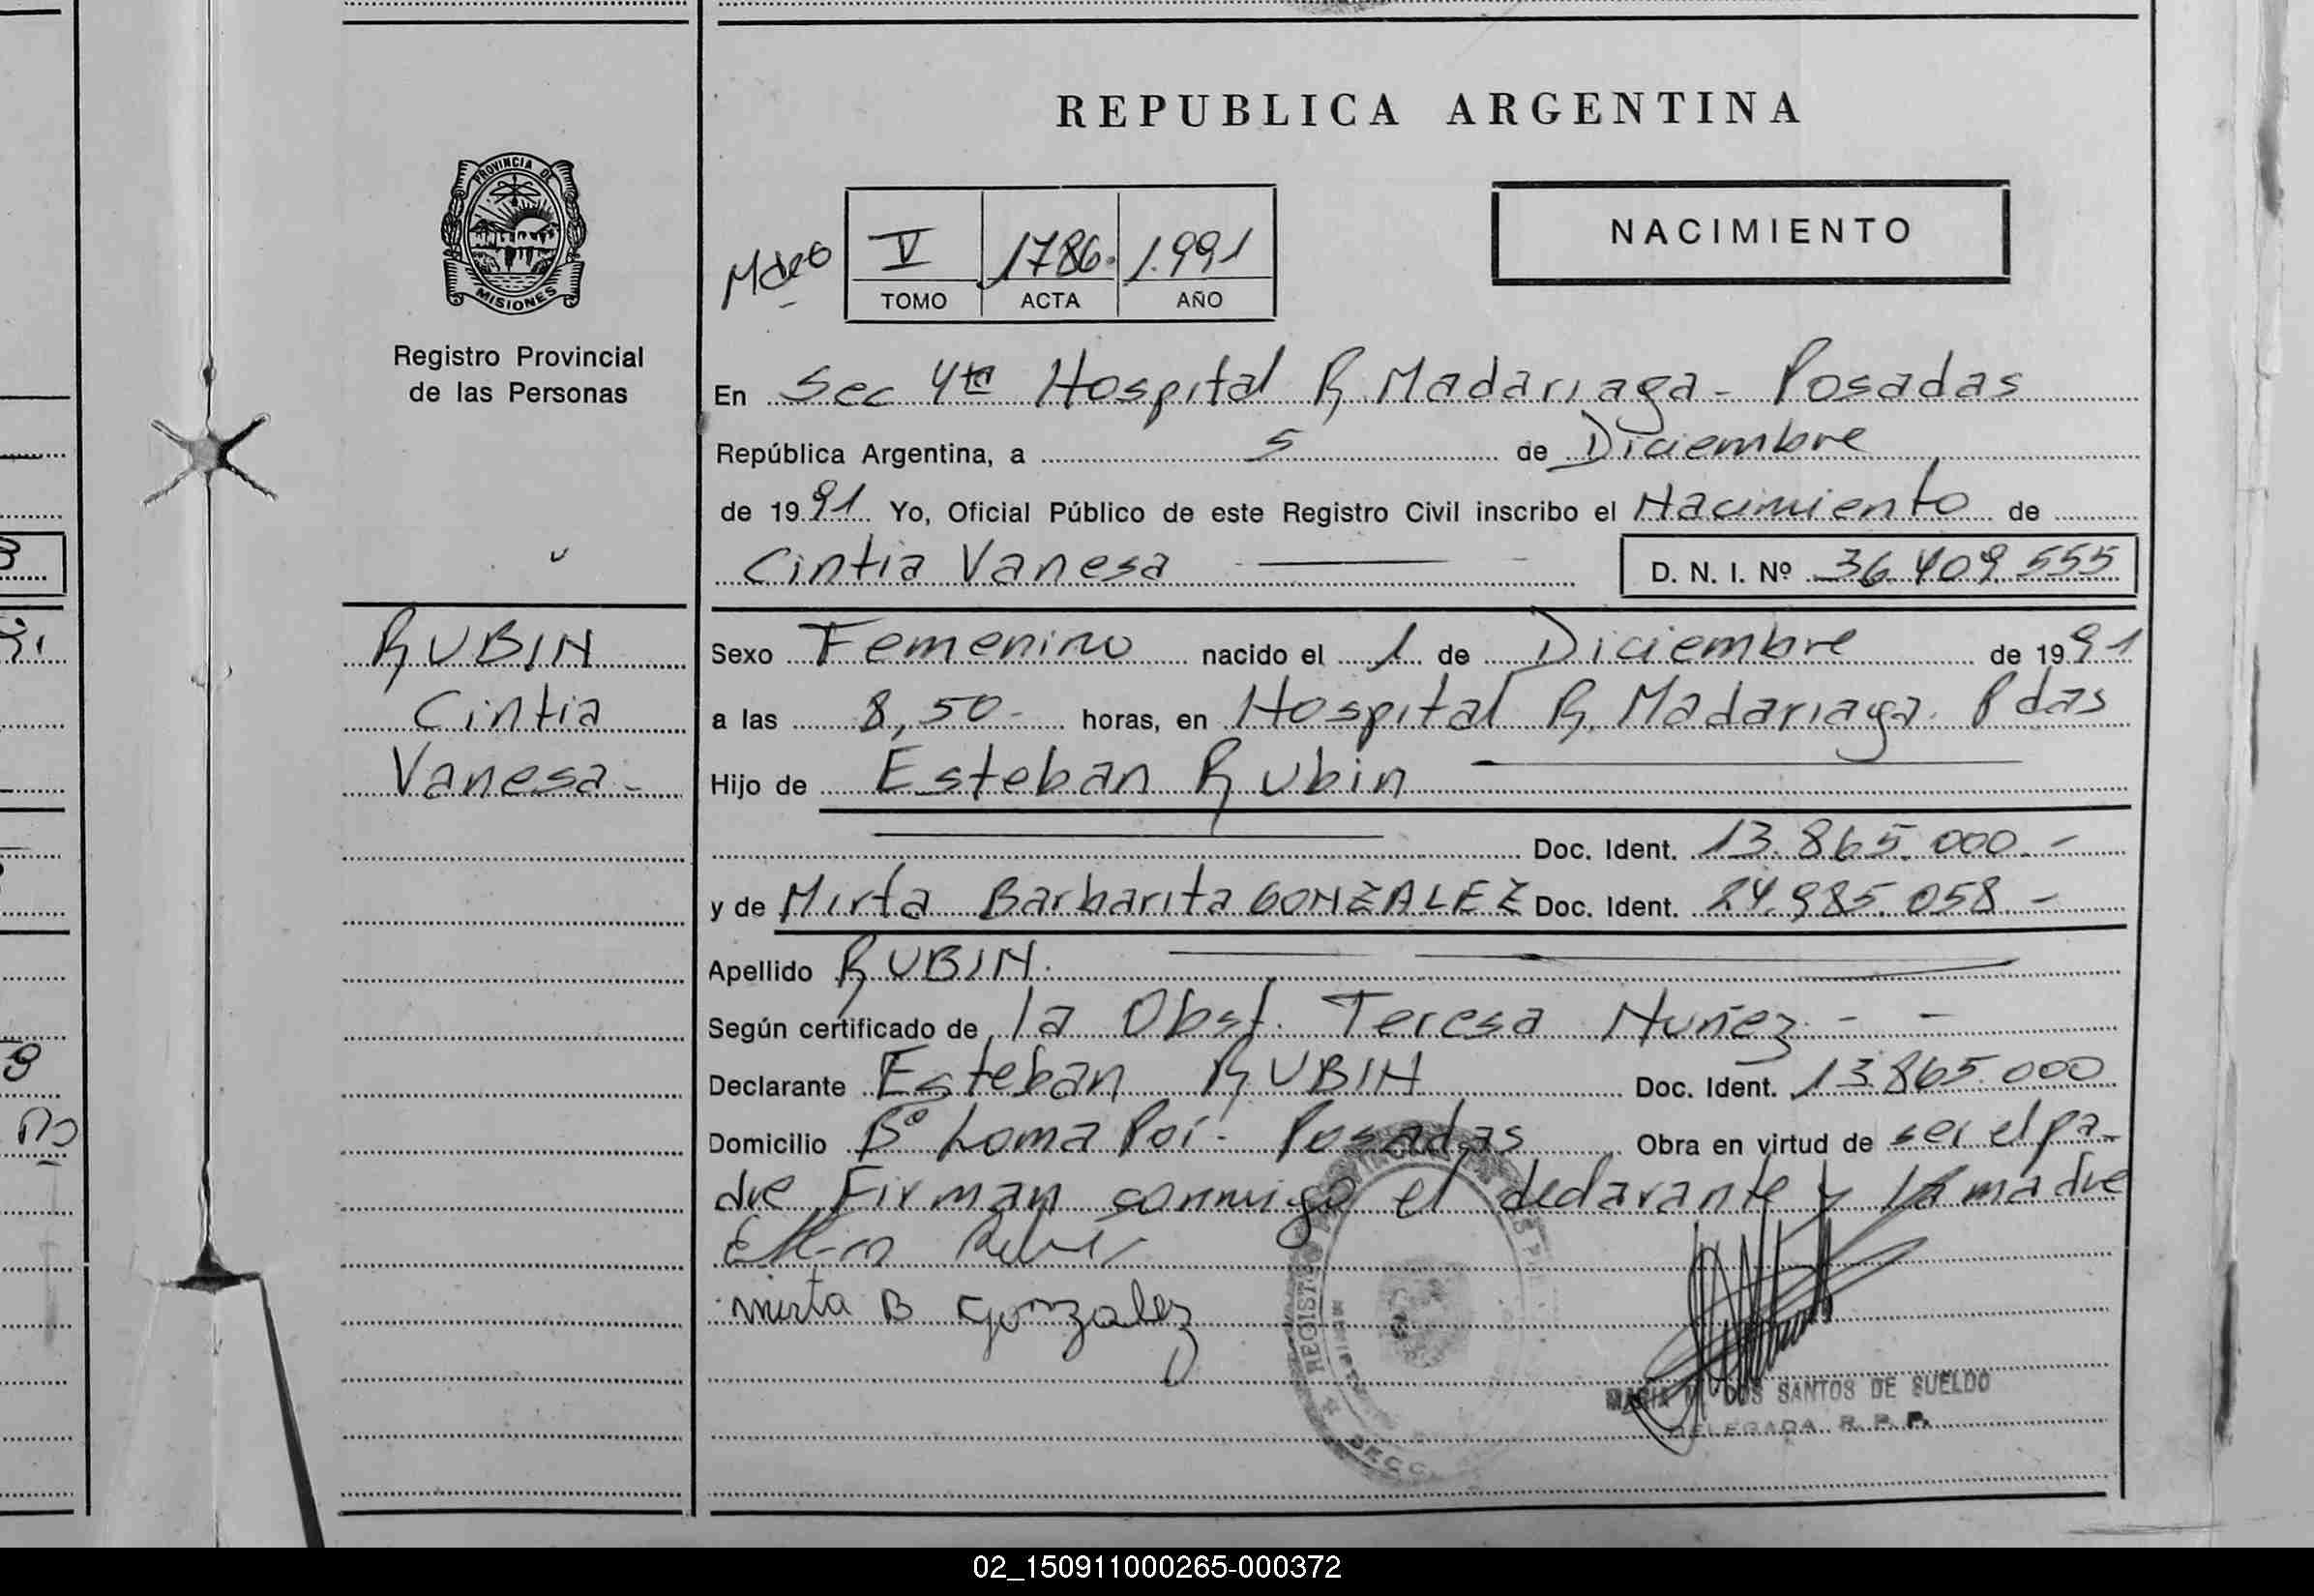 REPUBLICA ARGENTINA
PROVINCIA DE
MISIONES
Registro Provincial
de las Personas
NACIMIENTO
V 1786. 1.991
TOMO ACTA AÑO
En Sec 4ta Hospital R. Madariaga - Posadas
República Argentina, a 5 de Diciembre
de 1991 Yo, Oficial Público de este Registro Civil inscribo el Nacimiento de
Cintia Vanesa D. N. I. Nº 36.409.555
RUBIN
Cintia
Vanesa -
Sexo Femenino nacido el 1 de Diciembre de 1991
a las 8,50 - horas, en Hospital R. Madariaga. Pdas
Hijo de Esteban Rubin
Doc. Ident. 13.865.000.-
y de Mirta Barbarita GONZALEZ Doc. Ident. 24.985.058 -
Apellido RUBIN.
Según certificado de la Obst. Teresa Nuñez - -
Declarante Esteban RUBIN Doc. Ident. 13.865.000
Domicilio Bº Loma Poi - Posadas Obra en virtud de ser el pa-
dre Firman conmigo el declarante y la madre
mirta B Gonzalez
REGISTRO
DOS SANTOS DE SUELDO
DELEGADA R. P. P.
02_150911000265-000372